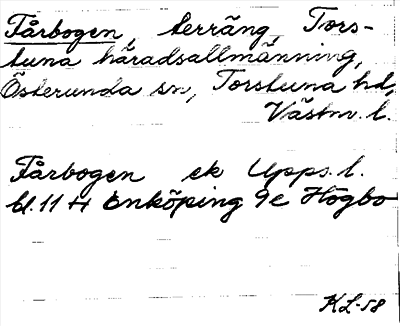 Fårbogen, terräng, Tors-
tuna häradsallmänning,
Österunda sn, Torstuna hd,
Västm. l.
Fårbogen ek Upps. l.
bl. 11 H Enköping 9e Högbo
KL-58